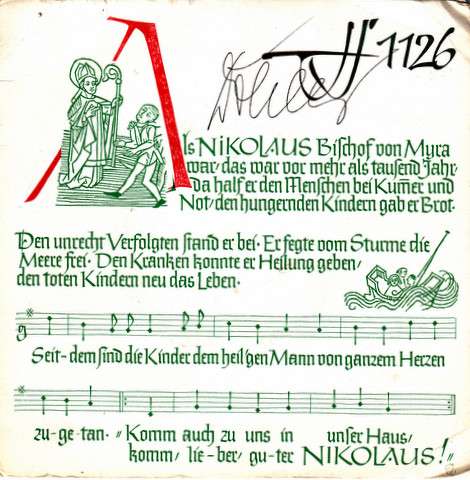 1126
Als NIKOLAUS Bischof von Myra
war/ das war vor mehr als tausend Jahr/
da half er den Menschen bei Kum̄er und
Not/ den hungernden Kindern gab er Brot·
Den unrecht Verfolgten stand er bei· Er fegte vom Sturme die
Meere frei· Den Kranken konnte er Heilung geben/
den toten Kindern neu das Leben·
Seit-dem sind die Kinder dem heil'gen Mann von ganzem Herzen
zu-ge-tan· „Komm auch zu uns in unser Haus/
komm/ lie-ber/ gu-ter NIKOLAUS!"